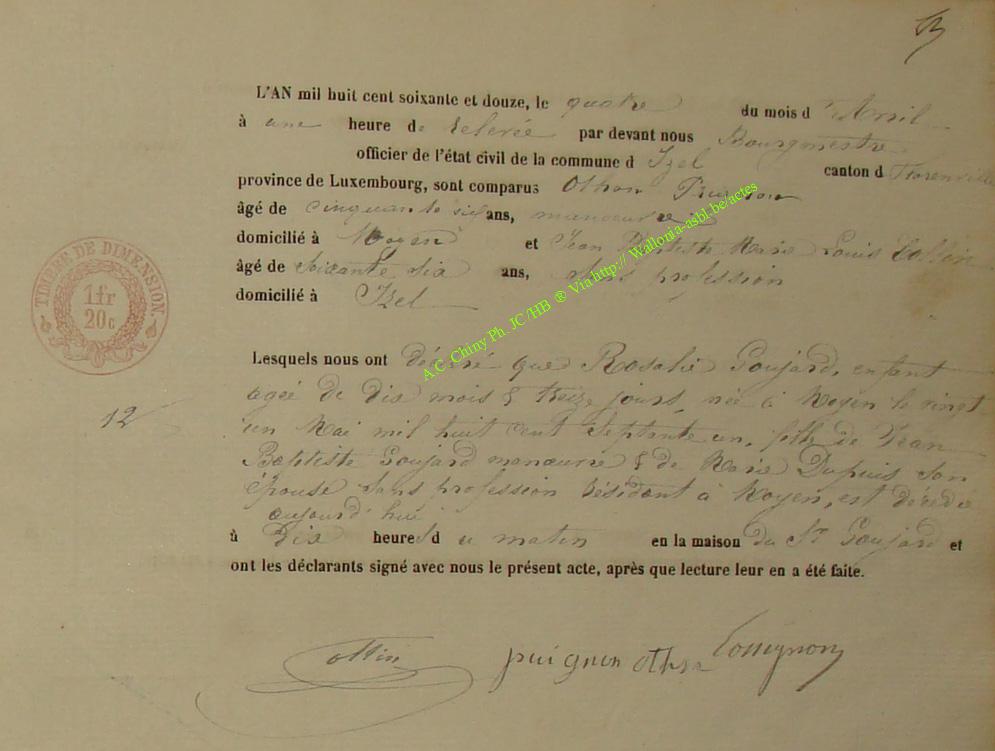 L'AN mil huit cent soixante et douze, le quatre du mois d'Avril
à une heure de relevée par devant nous Bourgmestre
officier de l'état civil de la commune d Izel canton d Florenville
province de Luxembourg, sont comparus Othon
âgé de cinquante six ans, manoeuvre
domicilié à Moyen et Jean Baptiste Marie Louis
âgé de soixante six ans, sans profession
domicilié à Izel
TIMBRE DE DIMENSION.
1fr
20c
Lesquels nous ont déclaré que Rosalie Goujard, enfant
agée de dix mois & treize jours, née à Moyen le vingt
12
un Mai mil huit cent septante un, fille de Jean
Baptiste Goujard manoeuvre & de Marie Dupuis son
épouse sans profession résidant à Moyen, est décédée
aujourd'hui
à Dix heures du matin en la maison du Sr Goujard et
ont les déclarants signé avec nous le présent acte, après que lecture leur en a été faite.
puignon othon
A.C. Chiny Ph. JC/HB ® Via http:// Wallonia-asbl.be/actes